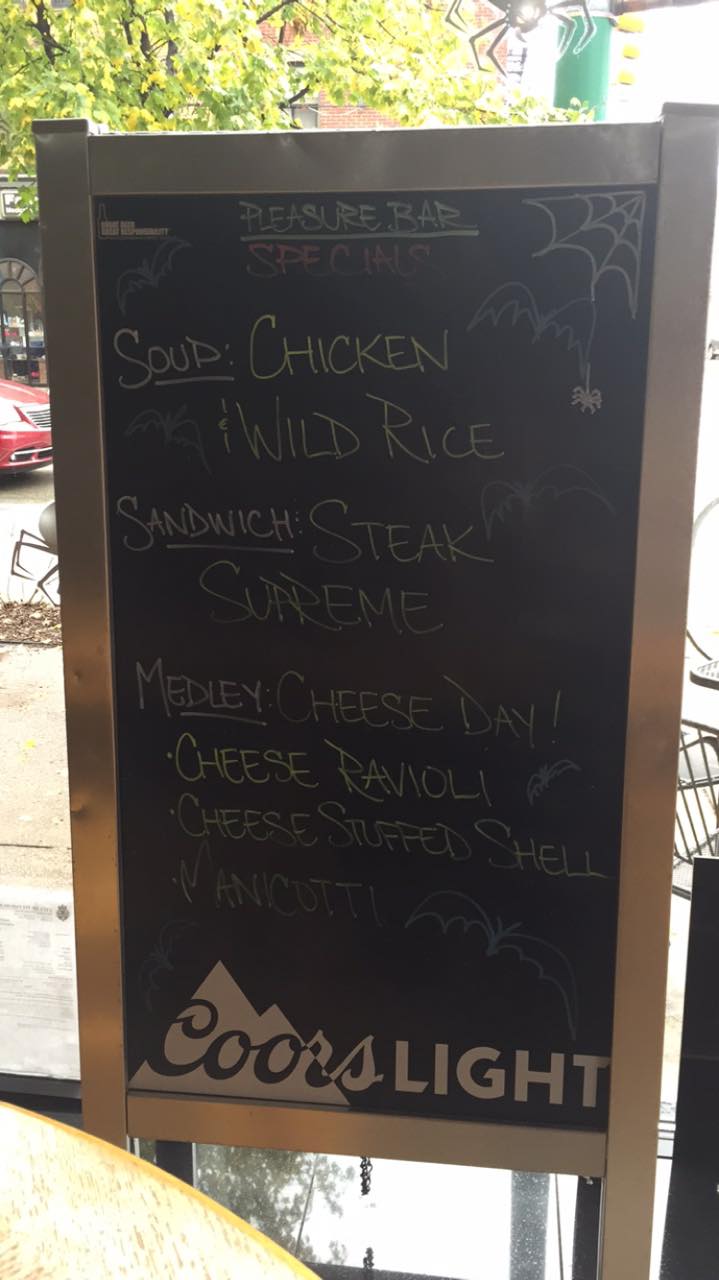 GREAT BEER
GREAT RESPONSIBILITY
PLEASURE BAR
SPECIALS
SOUP: CHICKEN
& WILD RICE
SANDWICH: STEAK
SUPREME
MEDLEY: CHEESE DAY!
·CHEESE RAVIOLI
·CHEESE STUFFED SHELL
·MANICOTTI
Coors LIGHT